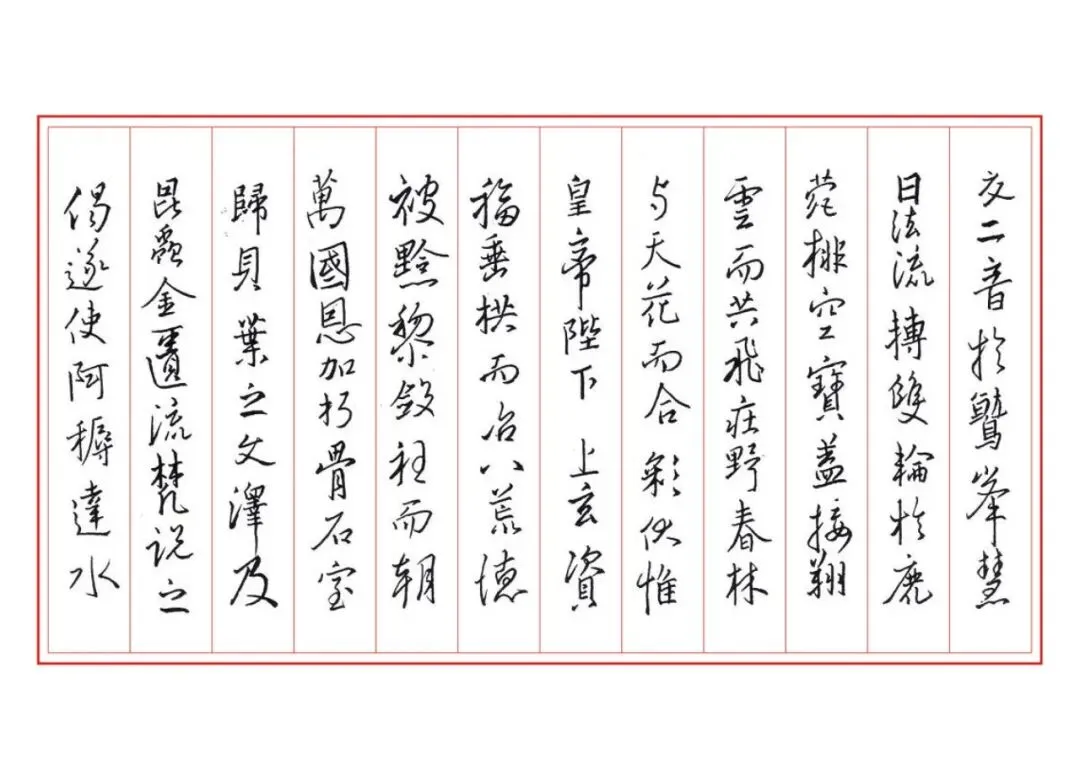 交二音於鷲峯慧
日法流轉雙輪於鹿
苑排空寶蓋接翔
雲而共飛莊野春林
与天花而合彩伏惟
皇帝陛下 上玄資
福垂拱而治八荒德
被黔黎斂衽而朝
萬國恩加朽骨石室
歸貝葉之文澤及
昆蟲金匱流梵説之
偈遂使阿耨達水